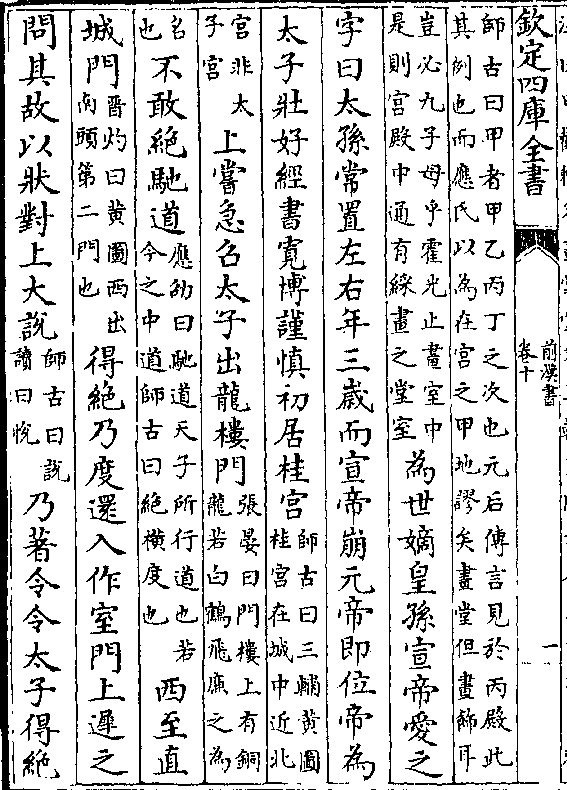 欽定四庫全書
前漢書
卷十
一
師古曰甲者甲乙丙丁之次也元后傳言見於丙殿此
其例也而應氏以為在宮之甲地謬矣畫堂但畫飾耳
豈必九子母乎霍光止畫室中
是則宮殿中通有綵畫之堂室
為世嫡皇孫宣帝愛之
字曰太孫常置左右年三歲而宣帝崩元帝即位帝為
太子壯好經書寬博謹慎初居桂宮
師古曰三輔黃圖
桂宮在城中近北
宮非太
子宮
上嘗急召太子出龍樓門
張晏曰門樓上有銅
龍若白鶴飛廉之為
名
也
不敢絕馳道
應劭曰馳道天子所行道也若
今之中道師古曰絕橫度也
西至直
城門
晉灼曰黃圖西出
南頭第二門也
得絕乃度還入作室門上遲之
問其故以狀對上大說
師古曰說
讀曰悅
乃著令令太子得絕